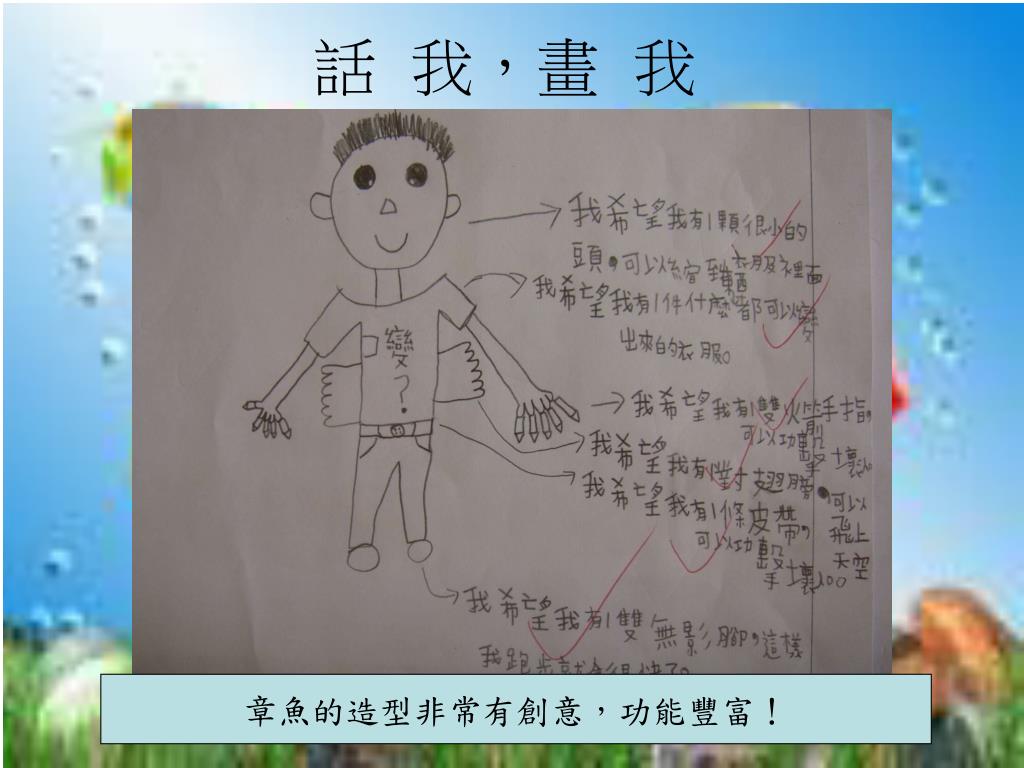 話 我，畫 我
我希望我有1顆很小的
頭，可以縮官到衣服裡面
我希望我有1件什麼都可以變
出來的衣服。
變？
我希望我有1雙火箭手指，
可以功擊壞人
我希望我有1對翅膀，可以
飛上
天空
我希望我有1條皮帶，
可以功擊壞人。
我希望我有1雙無影腳，這樣
我跑步就會很快了。
章魚的造型非常有創意，功能豐富！